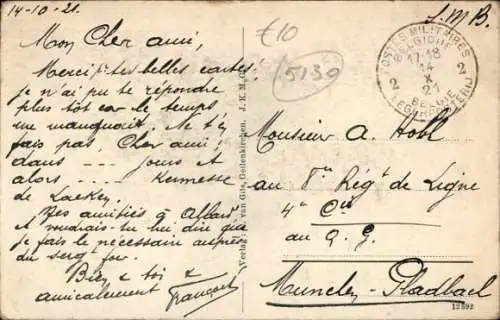 14-10-21.
S.M.B.
Mon Cher ami,
Merci p. tes belles cartes!
je n'ai pu te répondre
plus tôt car le temps
me manquait. Ne t'en
fais pas, Cher ami!
dans --- jours et
alors --- Kermesse
de Laeken.
Mes amitiés à Allard
et voudrais-tu lui dire que
je fais le nécessaire auprès
du serg
Bien à toi &
amicalement François
€10
5139
POSTES MILITAIRES
BELGIQUE
17-18
14
X
21
2 2
BELGIE
LEGERPOSTERIJ
Verlag: van Gils, Geilenkirchen. J. K. M. G.
Monsieur A. Hobl
au 8me Rég t de Ligne
4e Cie
au Q. G.
Munchen-Gladbach
12592